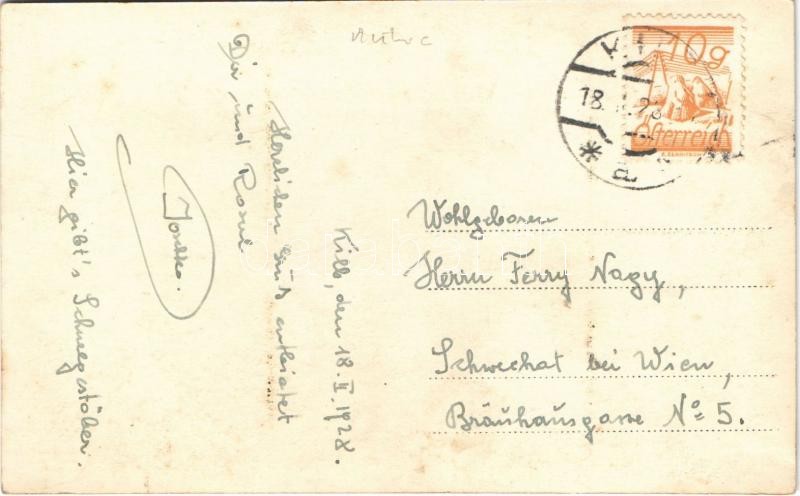 Kilb, den 18. II. 1928.
Herzlichen Gruß entbietet
Dir und
Hier gibt's Schneegestöber.
10g
Österreich
18.
Wohlgeboren
Herrn Ferry Nagy,
Schwechat bei Wien,
Bräuhausgasse No 5.